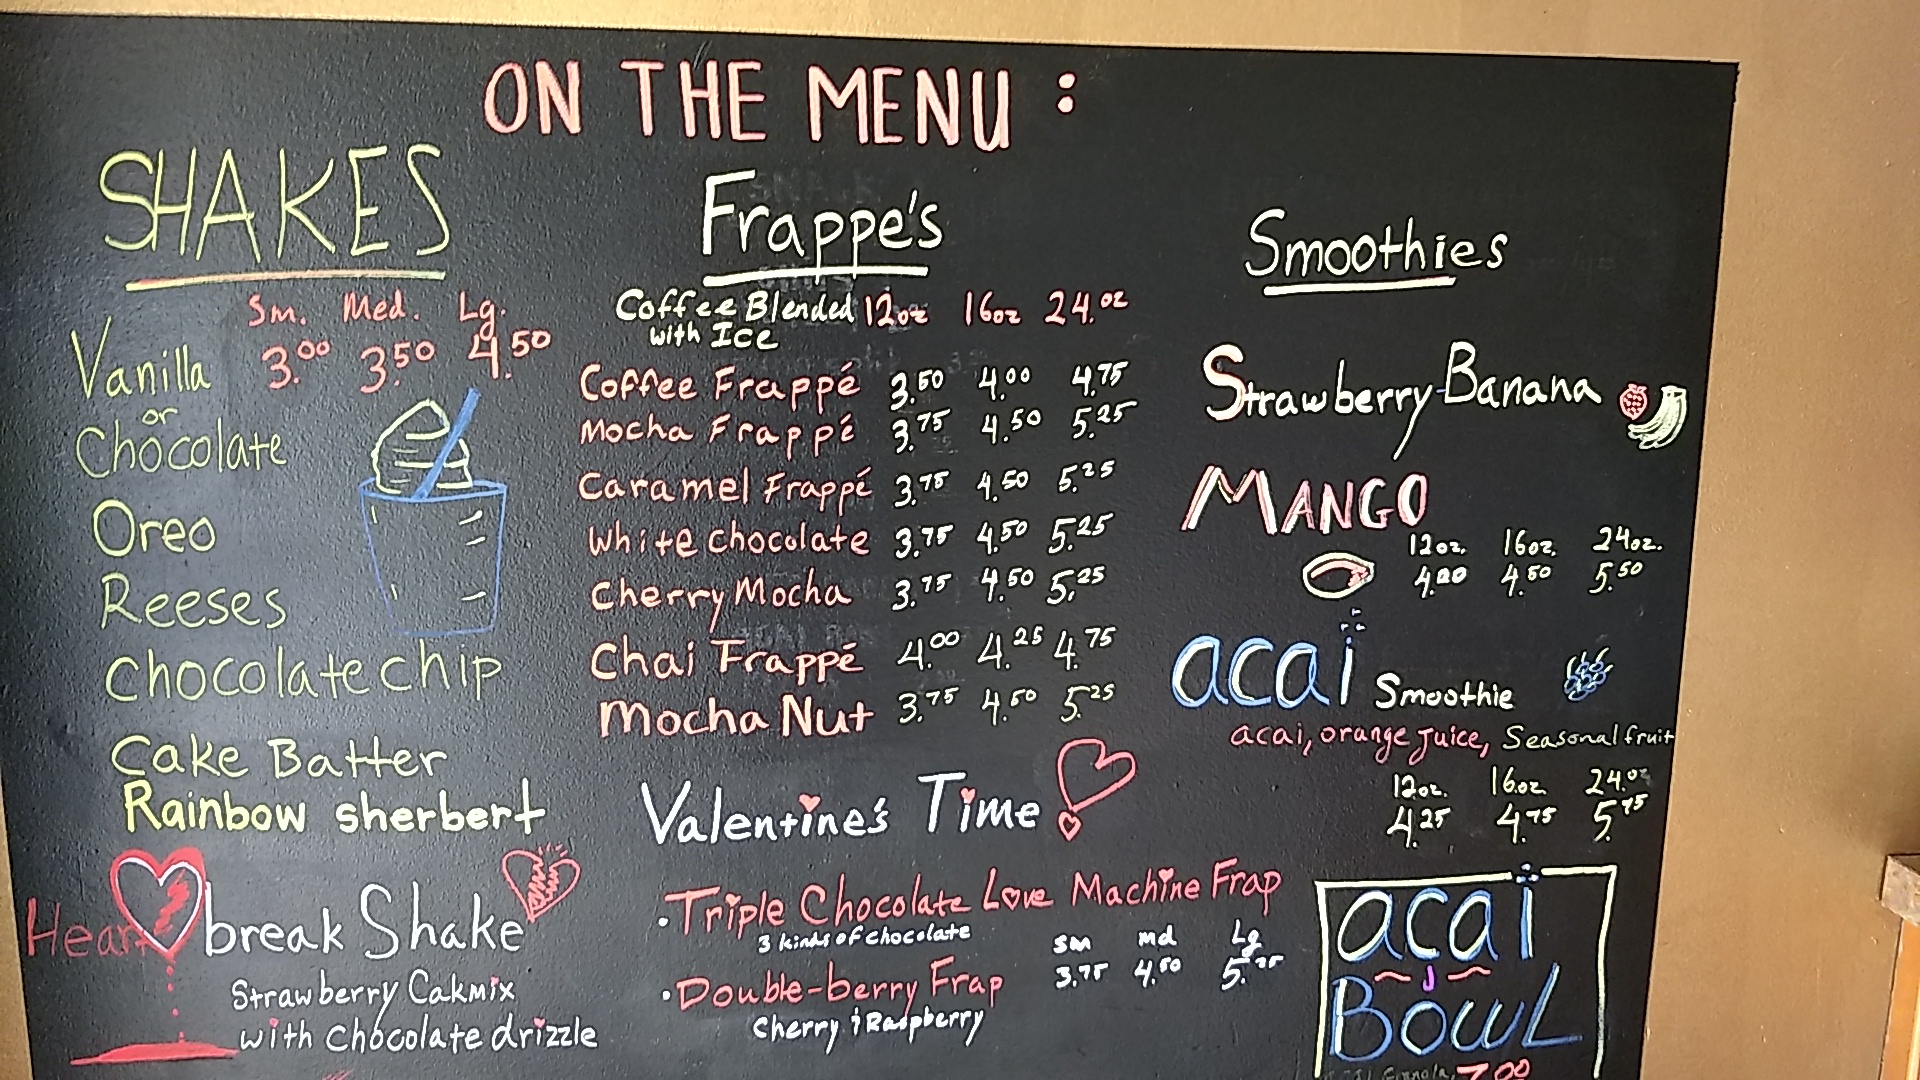 ON THE MENU :
SHAKES
Sm. Med. Lg.
Vanilla 3.00 3.50 4.50
or
Chocolate
Oreo
Reeses
Chocolate chip
Cake Batter
Rainbow sherbert
Heartbreak Shake
Strawberry Cakmix
with chocolate drizzle
Frappe's
Coffee Blended 12oz 16oz 24.oz
with Ice
Coffee Frappé 3.50 4.00 4.75
Mocha Frappé 3.75 4.50 5.25
Caramel Frappé 3.75 4.50 5.25
White chocolate 3.75 4.50 5.25
Cherry Mocha 3.75 4.50 5.25
Chai Frappé 4.00 4.25 4.75
Mocha Nut 3.75 4.50 5.25
Valentine's Time
• Triple Chocolate Love Machine Frap
3 kinds of chocolate
sm md Lg
3.75 4.50 5.25
• Double-berry Frap
Cherry & Raspberry
Smoothies
Strawberry-Banana
MANGO
12oz. 16oz. 24oz.
4.00 4.50 5.50
acai Smoothie
acai, orange juice, Seasonal fruit
12oz. 16.oz 24.oz
4.25 4.75 5.75
acai
BOWL
Granola, 7.00